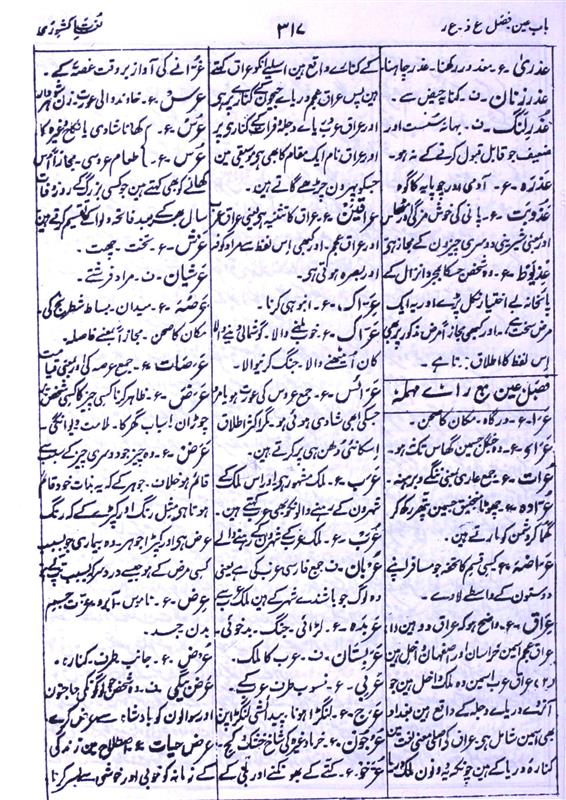 باب عین فصل ع ذ۔ع ر
۳۱۷
لغت کشوری
عذریٰ ۔ ع ۔ عذر رکھنا ۔ عذر چاہنا
عذر زنان ۔ ف ۔ کنایہ حیض سے ۔
عذر لنگ ۔ ف ۔ بہانہ سست اور
ضعیف جو قابل قبول کرنے کے نہ ہو۔
عذرہ ۔ ع ۔ آدمی اور چوپایے کا گوہ
عذوبت ۔ ع ۔ پانی کی خوش مزگی
اور بمعنی شیرینی دوسری چیزوں کے مجاز ہی
عذیوط ۔ ع ۔ وہ شخص جسکا بمجرد انزال کے
پائخانہ بے اختیار نکل پڑے اور یہ ایک
مرض سخت ہے ۔ اور کبھی مجازاً مرض مذکور پر بھی
اس لفظ کا اطلاق ہوتا ہے ۔
فصل عین مع راے مہملہ
عرا ۔ ع ۔ درگاہ ۔ مکان کا صحن ۔
عراء ۔ ع ۔ وہ جنگل جسمین گھاس تک نہ ہو ۔
عرات ۔ ع ۔ جمع عاری بمعنی ننگے و برہنہ ۔
عرادہ ۔ ع ۔ چھوٹا منجنیق جسمین پتھر رکھ کر
گھما کر دشمن کو مارتے ہین ۔
عراضہ ۔ ع ۔ کسی قسم کا تحفہ جو مسافر اپنے
دوستون کے واسطے لاوے ۔
عراق ۔ ع ۔ واضح ہو کہ عراق دو ہین
عراق عجم اسمین خراسان اور اصفہان داخل ہین
(۲) عراق عرب اسمین وہ ملک داخل ہین جو
آنروے دریاے دجلہ کے واقع ہین بغداد
بھی اسمین شامل ہی ۔ عراق کی اصلی معنی لغت مین
کنارہ دریا کے ہین چونکہ یہ دونون ملک دریا
کے کنارے واقع ہین اسلیے انکو عراق کہتے
ہین پس عراق عجم دریاے جیحون کے کنارے پر ہی
اور عراق عرب دریاے دجلہ و فرات کے کنارے پر
اور عراق نام ایک مقام کا بھی ہی موسیقی مین
جسکو پہر دن چڑھے گاتے ہین ۔
عراقین ۔ ع ۔ عراق کا تثنیہ ہی یعنی عراق عرب
اور عراق عجم ۔ اور کبھی اس لفظ سے مراد کوفہ
اور بصرہ ہوتی ہی ۔
عراک ۔ ع ۔ انبوہی کرنا ۔
عراک ۔ ع ۔ خوب ملنے والا ۔ گوشمالی دینے والا
کان اینٹھنے والا ۔ جنگ کرنیوالا ۔
عرائس ۔ ع ۔ جمع عروس کی عورت ہو یا مرد
جسکی ابھی شادی ہوئی ہو ۔ مگر اکثر اطلاق
اسکا نئی دولھن ہی پر کرتے ہین ۔
عرب ۔ ع ۔ ملک مشہور ہی اور اس ملک کے
شہرون کے رہنے والونکو بھی عرب کہتے ہین ۔
عرب ۔ ع ۔ ملک عرب کے شہرونکے رہنے والے
عربان ۔ ف ۔ جمع فارسی عرب کی ہے یعنی
وہ لوگ جو باشندے شہر کے ہین ملک عرب سے
عربدہ ۔ ع ۔ لڑائی ۔ جنگ ۔ بدخوئی ۔
عربستان ۔ ف ۔ عرب کا ملک ۔
عربی ۔ ع ۔ منسوب طرف عرب کے ۔
عرج ۔ ع ۔ لنگڑا ہونا ۔ پیدائشی لنگڑا پن
عرجون ۔ ع ۔ خرما وغیرہ کی شاخ خشک و کج ۔
عرعر ۔ ع ۔ کتے کے بھونکنے اور بلی کے
غرّانے کی آواز بروقت غصہ کے ۔
عرس ۔ ع ۔ خاوند والی عورت ۔ زن شوہردار
عرس ۔ ع ۔ کھانا شادی یا نکاح وغیرہ کا
عرس ۔ ع ۔ طعام عروسی ۔ مجازاً اس
کھانے کو بھی کہتے ہین جو کسی بزرگ کے روز وفات
سال بھر کے بعد فاتحہ دلوا کے تقسیم کرتے ہین
عرش ۔ ع ۔ تخت ۔ چھت ۔
عرشیان ۔ ف ۔ مراد فرشتے ۔
عرصہ ۔ ع ۔ میدان ۔ بساط شطرنج کی ۔
مکان کا صحن ۔ مجازاً بمعنی فاصلہ ۔
عرصات ۔ ع ۔ جمع عرصہ کی اور بمعنی قیامت
عرض ۔ ع ۔ ظاہر کرنا کسی چیز کا کسی شخص پر
چوڑان ۔ اسباب گھر کا ۔ ملامت ۔ دیوانگی ۔
عرض ۔ ع ۔ وہ چیز جو دوسری چیز کے سبب سے
قائم ہو خلاف جوہر کے کہ یہ بذات خود قائم
ہوتا ہی مثل رنگ اور کپڑے کے کہ رنگ
عرض ہی اور کپڑا جوہر ۔ وہ بیماری جو بسبب
کسی مرض کے ہو جیسے درد سر بسبب تپ کے
عرض ۔ ع ۔ ناموس ۔ آبرو ۔ عزت ۔ جسم
بدن ۔ جسد ۔
عرض ۔ ع ۔ جانب ۔ طرف ۔ کنارہ ۔
عرض بیگی ۔ ف ۔ وہ شخص جو لوگونکی حاجتون
اور سوالون کو بادشاہ سے عرض کرے ۔
عرض حیات ۔ ع ۔ اصطلاح مین زندگی
کے زمانہ کو خوبی اور خوشی سے بسر کرنا